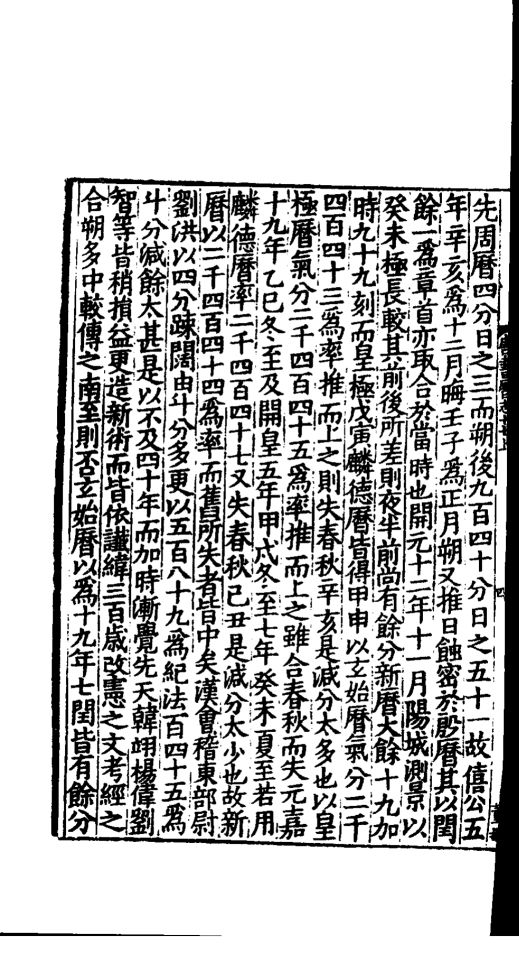 先周曆四分日之三而朔後九百四十分日之五十一故僖公五
年辛亥爲十二月晦壬子爲正月朔又推日蝕密於殷曆其以閏
餘一爲章首亦取合於當時也開元十二年十一月陽城測景以
癸未極長較其前後所差則夜半前尚有餘分新曆大餘十九加
時九十九刻而皇極戊寅麟德曆皆得甲申以玄始曆氣分二千
四百四十三爲率推而上之則失春秋辛亥是減分太多也以皇
極曆氣分二千四百四十五爲率推而上之雖合春秋而失元嘉
十九年乙巳冬至及開皇五年甲戌冬至七年癸未夏至若用
麟德曆率二千四百四十七又失春秋己丑是減分太少也故新
曆以二千四百四十四爲率而舊所失者皆中矣漢會稽東部尉
劉洪以四分疎闊由斗分多更以五百八十九爲紀法百四十五爲
斗分減餘太甚是以不及四十年而加時漸覺先天韓翊楊偉劉
智等皆稍損益更造新術而皆依讖緯三百歲改憲之文考經之
合朔多中較傳之南至則否玄始曆以爲十九年七閏皆有餘分
四